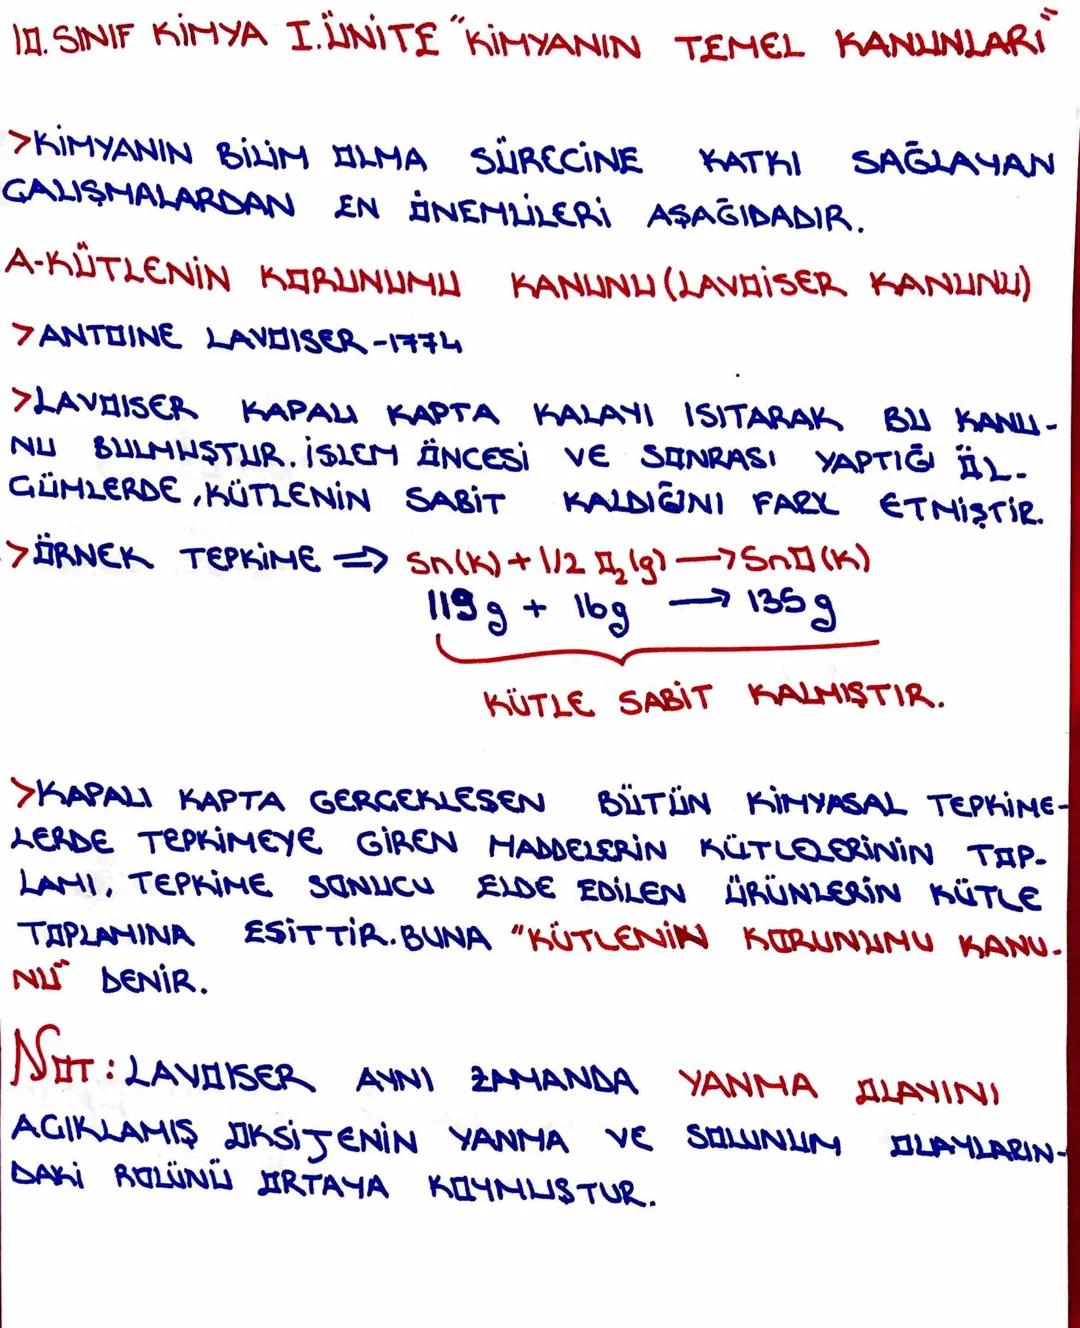 10. SINIF KİMYA I.ÜNİTE "KİMYANIN TEMEL KANUNLARI"
>KİMYANIN BİLİM OLMA SÜRECİNE KATKI SAĞLAYAN
ÇALIŞMALARDAN EN ÖNEMLİLERİ AŞAĞIDADIR.
A-KÜTLENİN KORUNUMU KANUNU (LAVOİSER KANUNU)
>ANTOINE LAVOISER-1774
>LAVOISER KAPALI KAPTA KALAYI ISITARAK BU KANU-
NU BULMUŞTUR. İŞLEM ÖNCESİ VE SONRASI YAPTIĞI ÖL-
ÇÜMLERDE, KÜTLENİN SABİT KALDIĞINI FARK ETMİŞTİR.
>ÖRNEK TEPKİME ⇒ Sn(k) + 1/2 O₂(g) → SnO(k)
119 g + 16g → 135 g
KÜTLE SABİT KALMIŞTIR.
>KAPALI KAPTA GERÇEKLEŞEN BÜTÜN KİMYASAL TEPKİME-
LERDE TEPKİMEYE GİREN MADDELERİN KÜTLELERİNİN TOP-
LAMI, TEPKİME SONUCU ELDE EDİLEN ÜRÜNLERİN KÜTLE
TOPLAMINA EŞİTTİR. BUNA "KÜTLENİN KORUNUMU KANU-
NU" DENİR.
NOT: LAVOISER AYNI ZAMANDA YANMA OLAYINI
AÇIKLAMIŞ OKSİJENİN YANMA VE SOLUNUM OLAYLARIN-
DAKİ ROLÜNÜ ORTAYA KOYMUŞTUR.